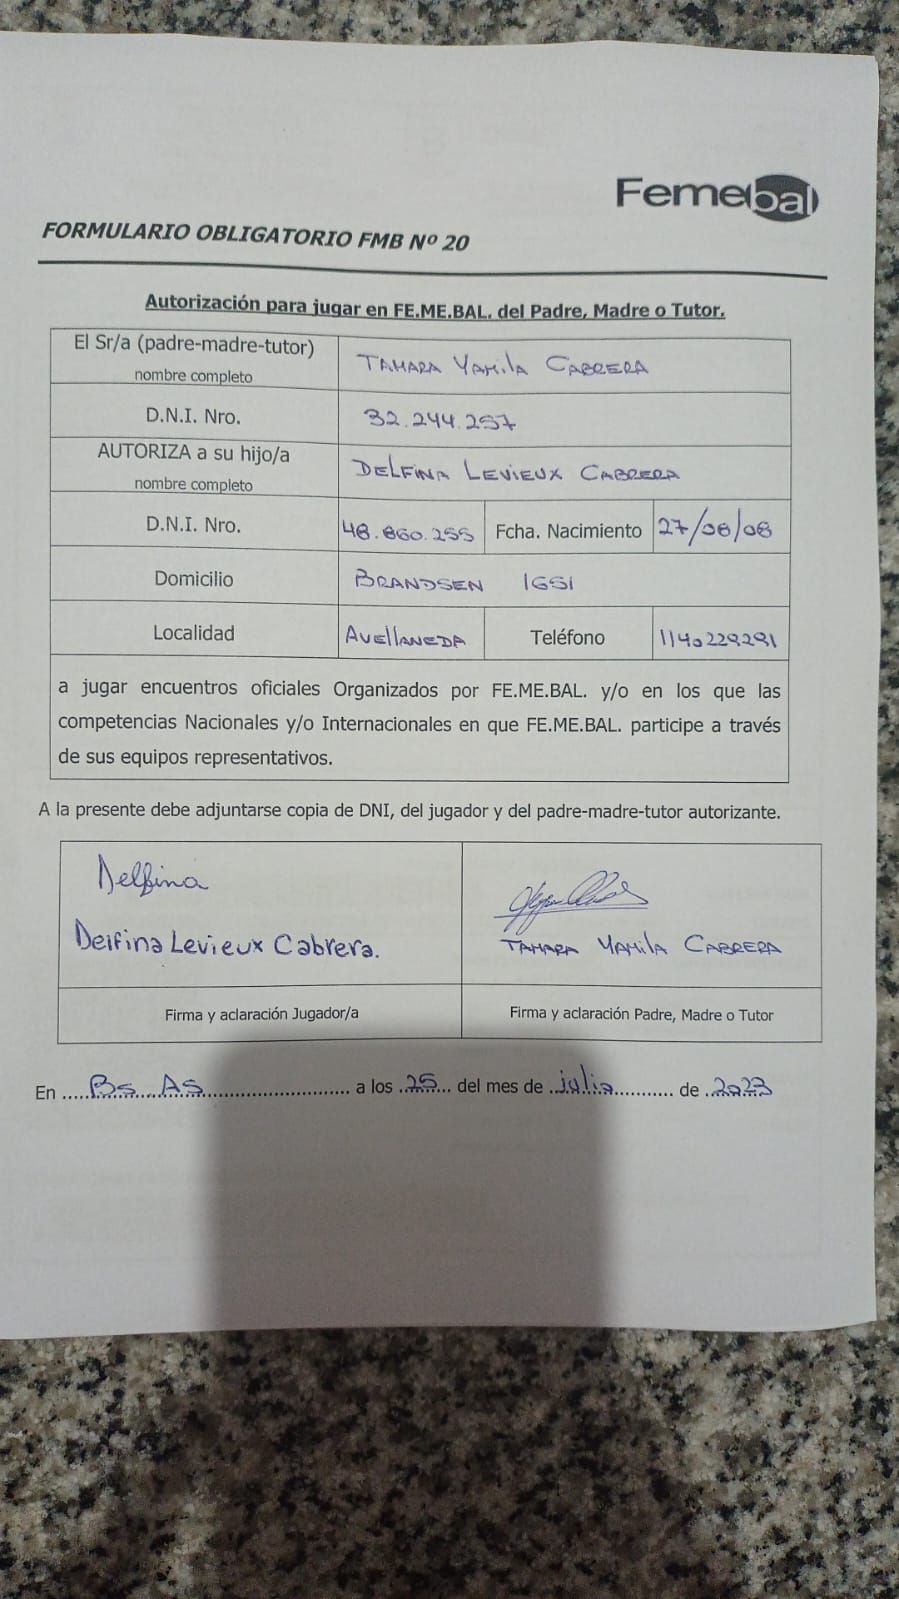 Femebal
FORMULARIO OBLIGATORIO FMB Nº 20
Autorización para jugar en FE.ME.BAL. del Padre, Madre o Tutor.
El Sr/a (padre-madre-tutor)
nombre completo
TAMARA YAMILA CABRERA
D.N.I. Nro.
32.244.257
AUTORIZA a su hijo/a
nombre completo
DELFINA LEVIEUX CABRERA
D.N.I. Nro.
48.860.255
Fcha. Nacimiento
27/08/08
Domicilio
BRANDSEN 1651
Localidad
AVELLANEDA
Teléfono
1140229291
a jugar encuentros oficiales Organizados por FE.ME.BAL. y/o en los que las
competencias Nacionales y/o Internacionales en que FE.ME.BAL. participe a través
de sus equipos representativos.
A la presente debe adjuntarse copia de DNI, del jugador y del padre-madre-tutor autorizante.
Delfina
Delfina Levieux Cabrera.
TAMARA YAMILA CABRERA
Firma y aclaración Jugador/a
Firma y aclaración Padre, Madre o Tutor
En Bs As a los 25 del mes de julio de 2023